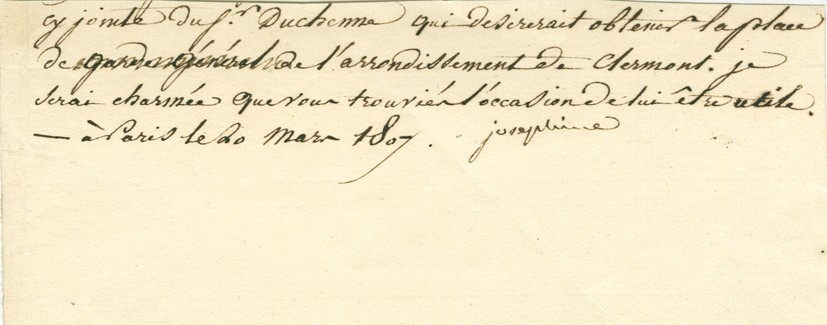 cy jointe du S.r Duchenne qui desirerait obtenir la place
de garde général de l'arrondissement de Clermont. je
serai charmée que vous trouviés l'occasion de lui être utile.
— à Paris le 20 Mars 1807. josephine